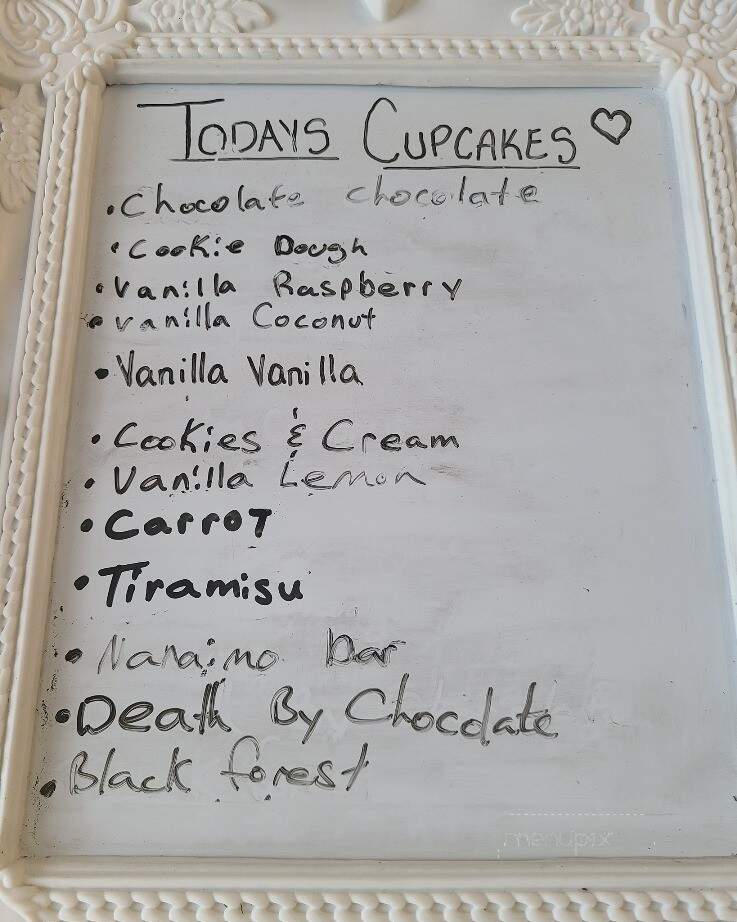 TODAYS CUPCAKES ♡
• Chocolate chocolate
• Cookie Dough
• Vanilla Raspberry
• vanilla Coconut
• Vanilla Vanilla
• Cookies & Cream
• Vanilla Lemon
• Carrot
• Tiramisu
• Nanaimo bar
• Death By Chocolate
• Black forest
menupix